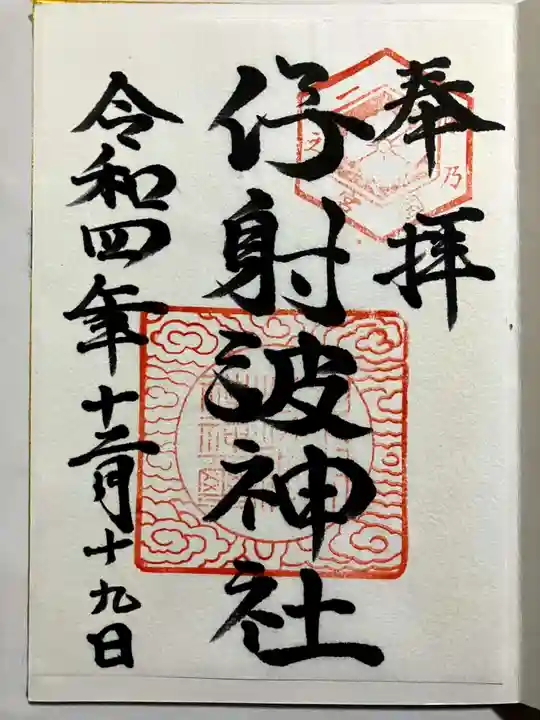 奉拝
伊射波神社
令和四年十二月十九日
二之宮
乃